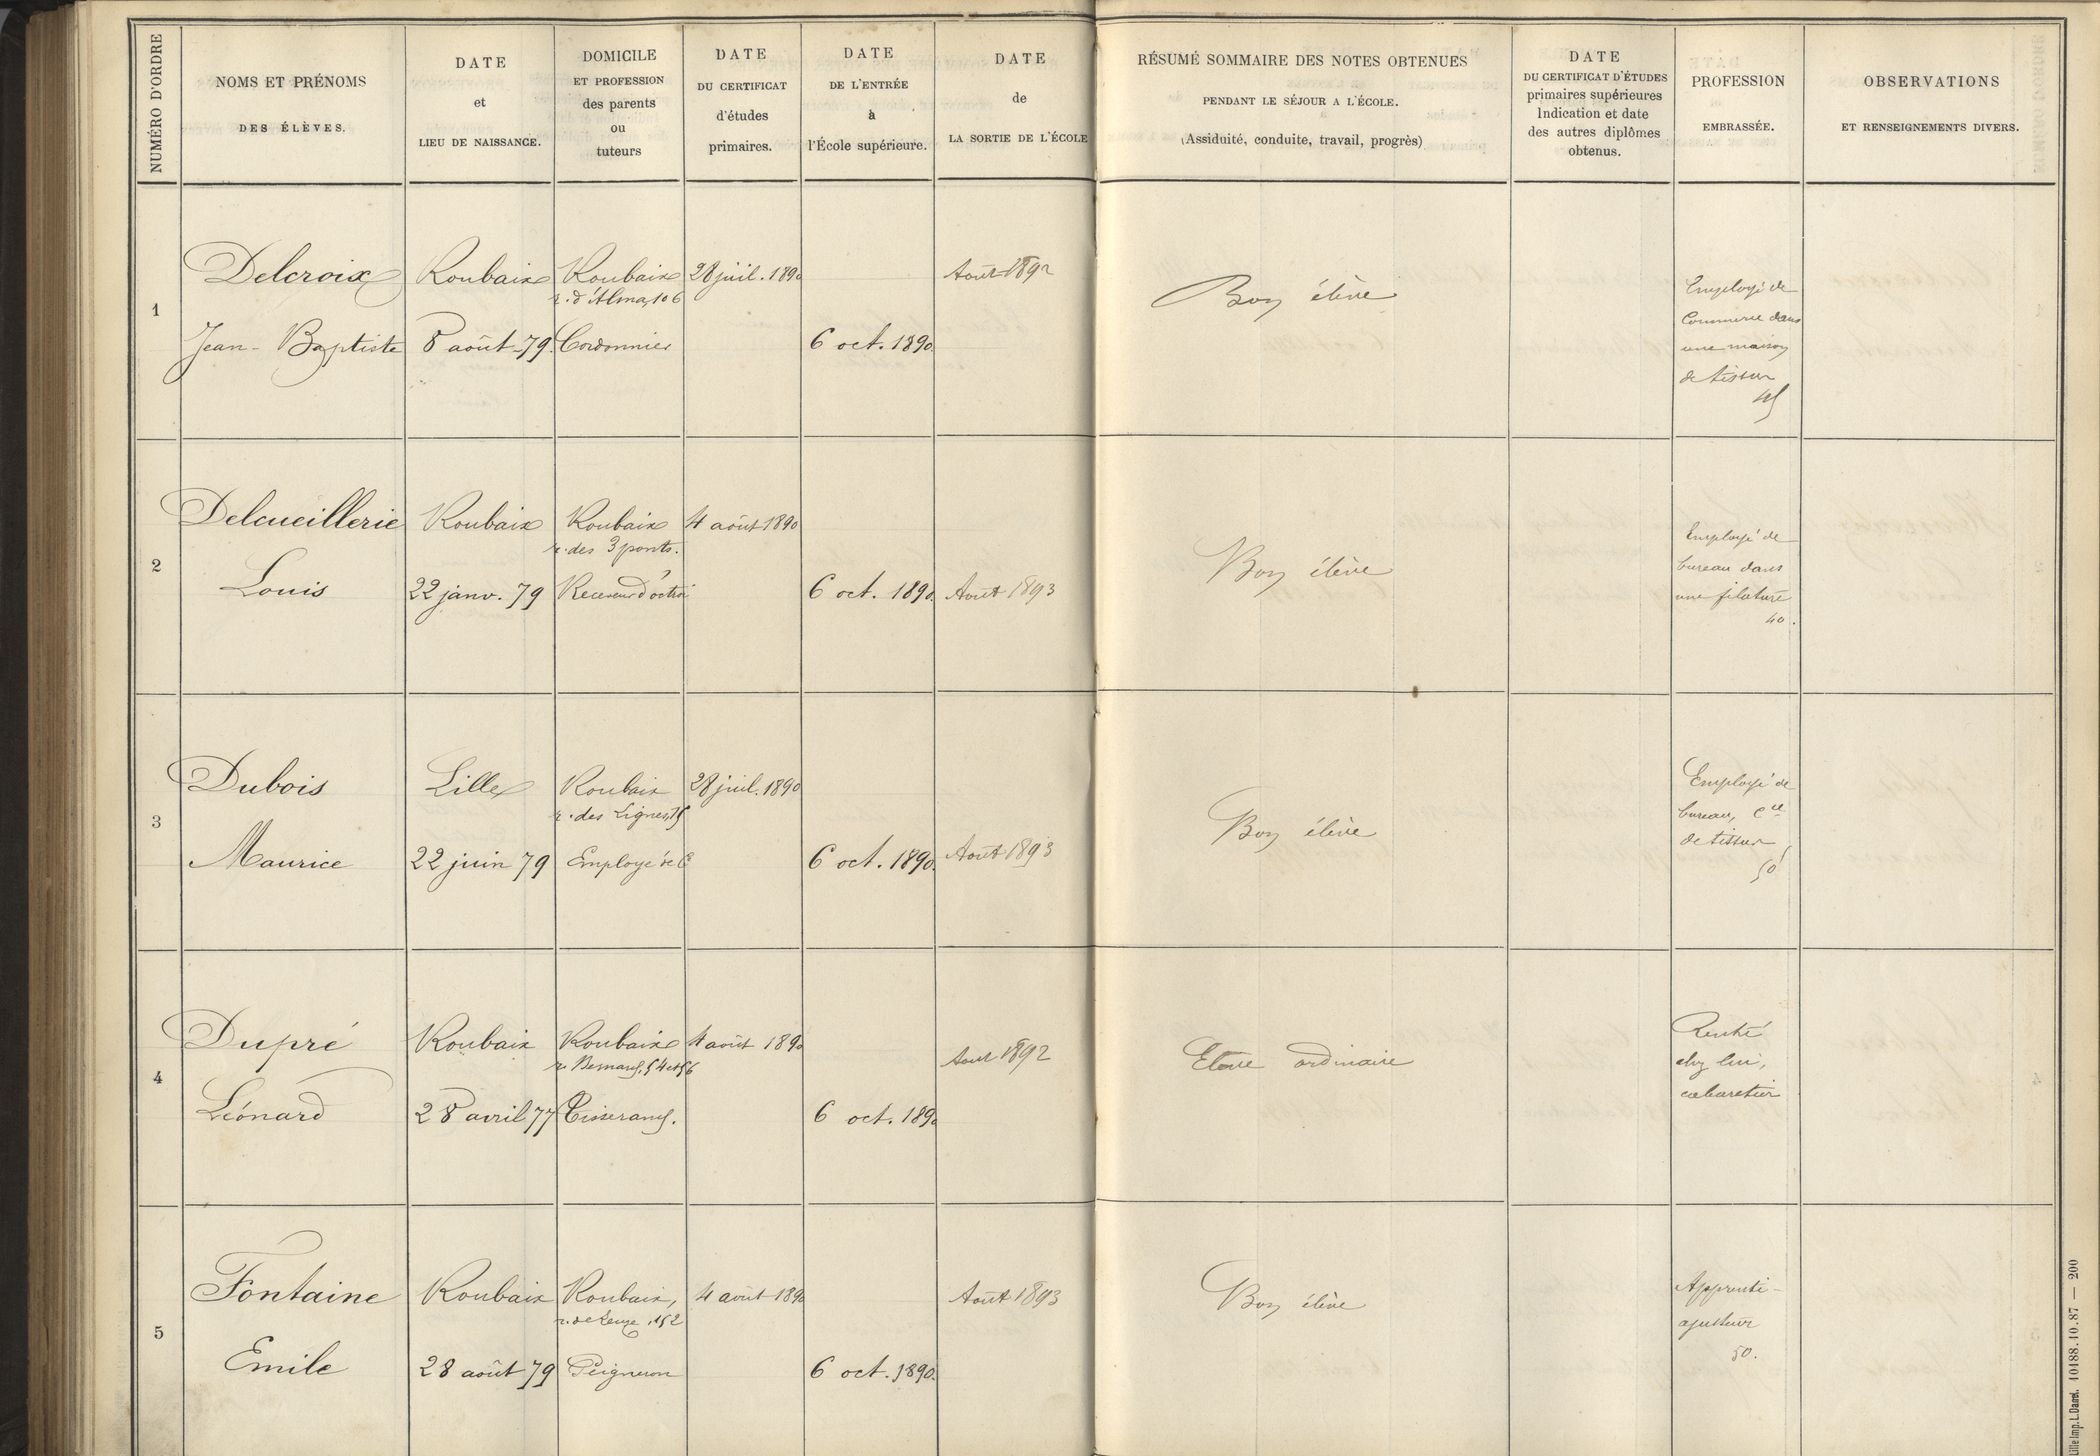 NUMÉRO D'ORDRE
NOMS ET PRÉNOMS
DES ÉLÈVES.
DATE
et
LIEU DE NAISSANCE.
DOMICILE
ET PROFESSION
des parents
ou
tuteurs
DATE
DU CERTIFICAT
d'études
primaires.
DATE
DE L'ENTRÉE
à
l'École supérieure.
DATE
de
LA SORTIE DE L'ÉCOLE
RÉSUMÉ SOMMAIRE DES NOTES OBTENUES
PENDANT LE SÉJOUR A L'ÉCOLE.
(Assiduité, conduite, travail, progrès)
DATE
DU CERTIFICAT D'ÉTUDES
primaires supérieures
Indication et date
des autres diplômes
obtenus.
PROFESSION
EMBRASSÉE.
OBSERVATIONS
ET RENSEIGNEMENTS DIVERS.
1
Delcroix
Jean-Baptiste
Roubaix
8 août -79.
Roubaix
r. d'Alma, 106
Cordonnier
28 juil. 1890
6 oct. 1890.
Août 1892
Bon élève
Employé de
Commerce dans
une maison
de tissus
45
2
Delcueillerie
Louis
Roubaix
22 janv. 79
Roubaix
r. des 3 ponts.
Receveur d'octroi
4 août 1890
6 oct. 1890.
Août 1893
Bon élève
Employé de
bureau dans
une filature
40.
3
Dubois
Maurice
Lille
22 juin 79
Roubaix
r. des Lignes, 75
Employé de C
28 juil. 1890
6 oct. 1890.
Août 1893
Bon élève
Employé de
bureau, Cce
de tissus
50
4
Dupré
Léonard
Roubaix
28 avril 77
Roubaix
r. Bernard, 54 et 56
Tisserand.
4 août 1890
6 oct. 1890
Aout 1892
Eleve ordinaire
Rentré
chez lui,
cabaretier
5
Fontaine
Emile
Roubaix
28 août 79
Roubaix,
r. de Leuze, 152
Peigneron
4 août 1890
6 oct. 1890.
Août 1893
Bon élève
Apprenti-
ajusteur
50.
Lille Imp. L. Danel. 10188.10.87 — 200